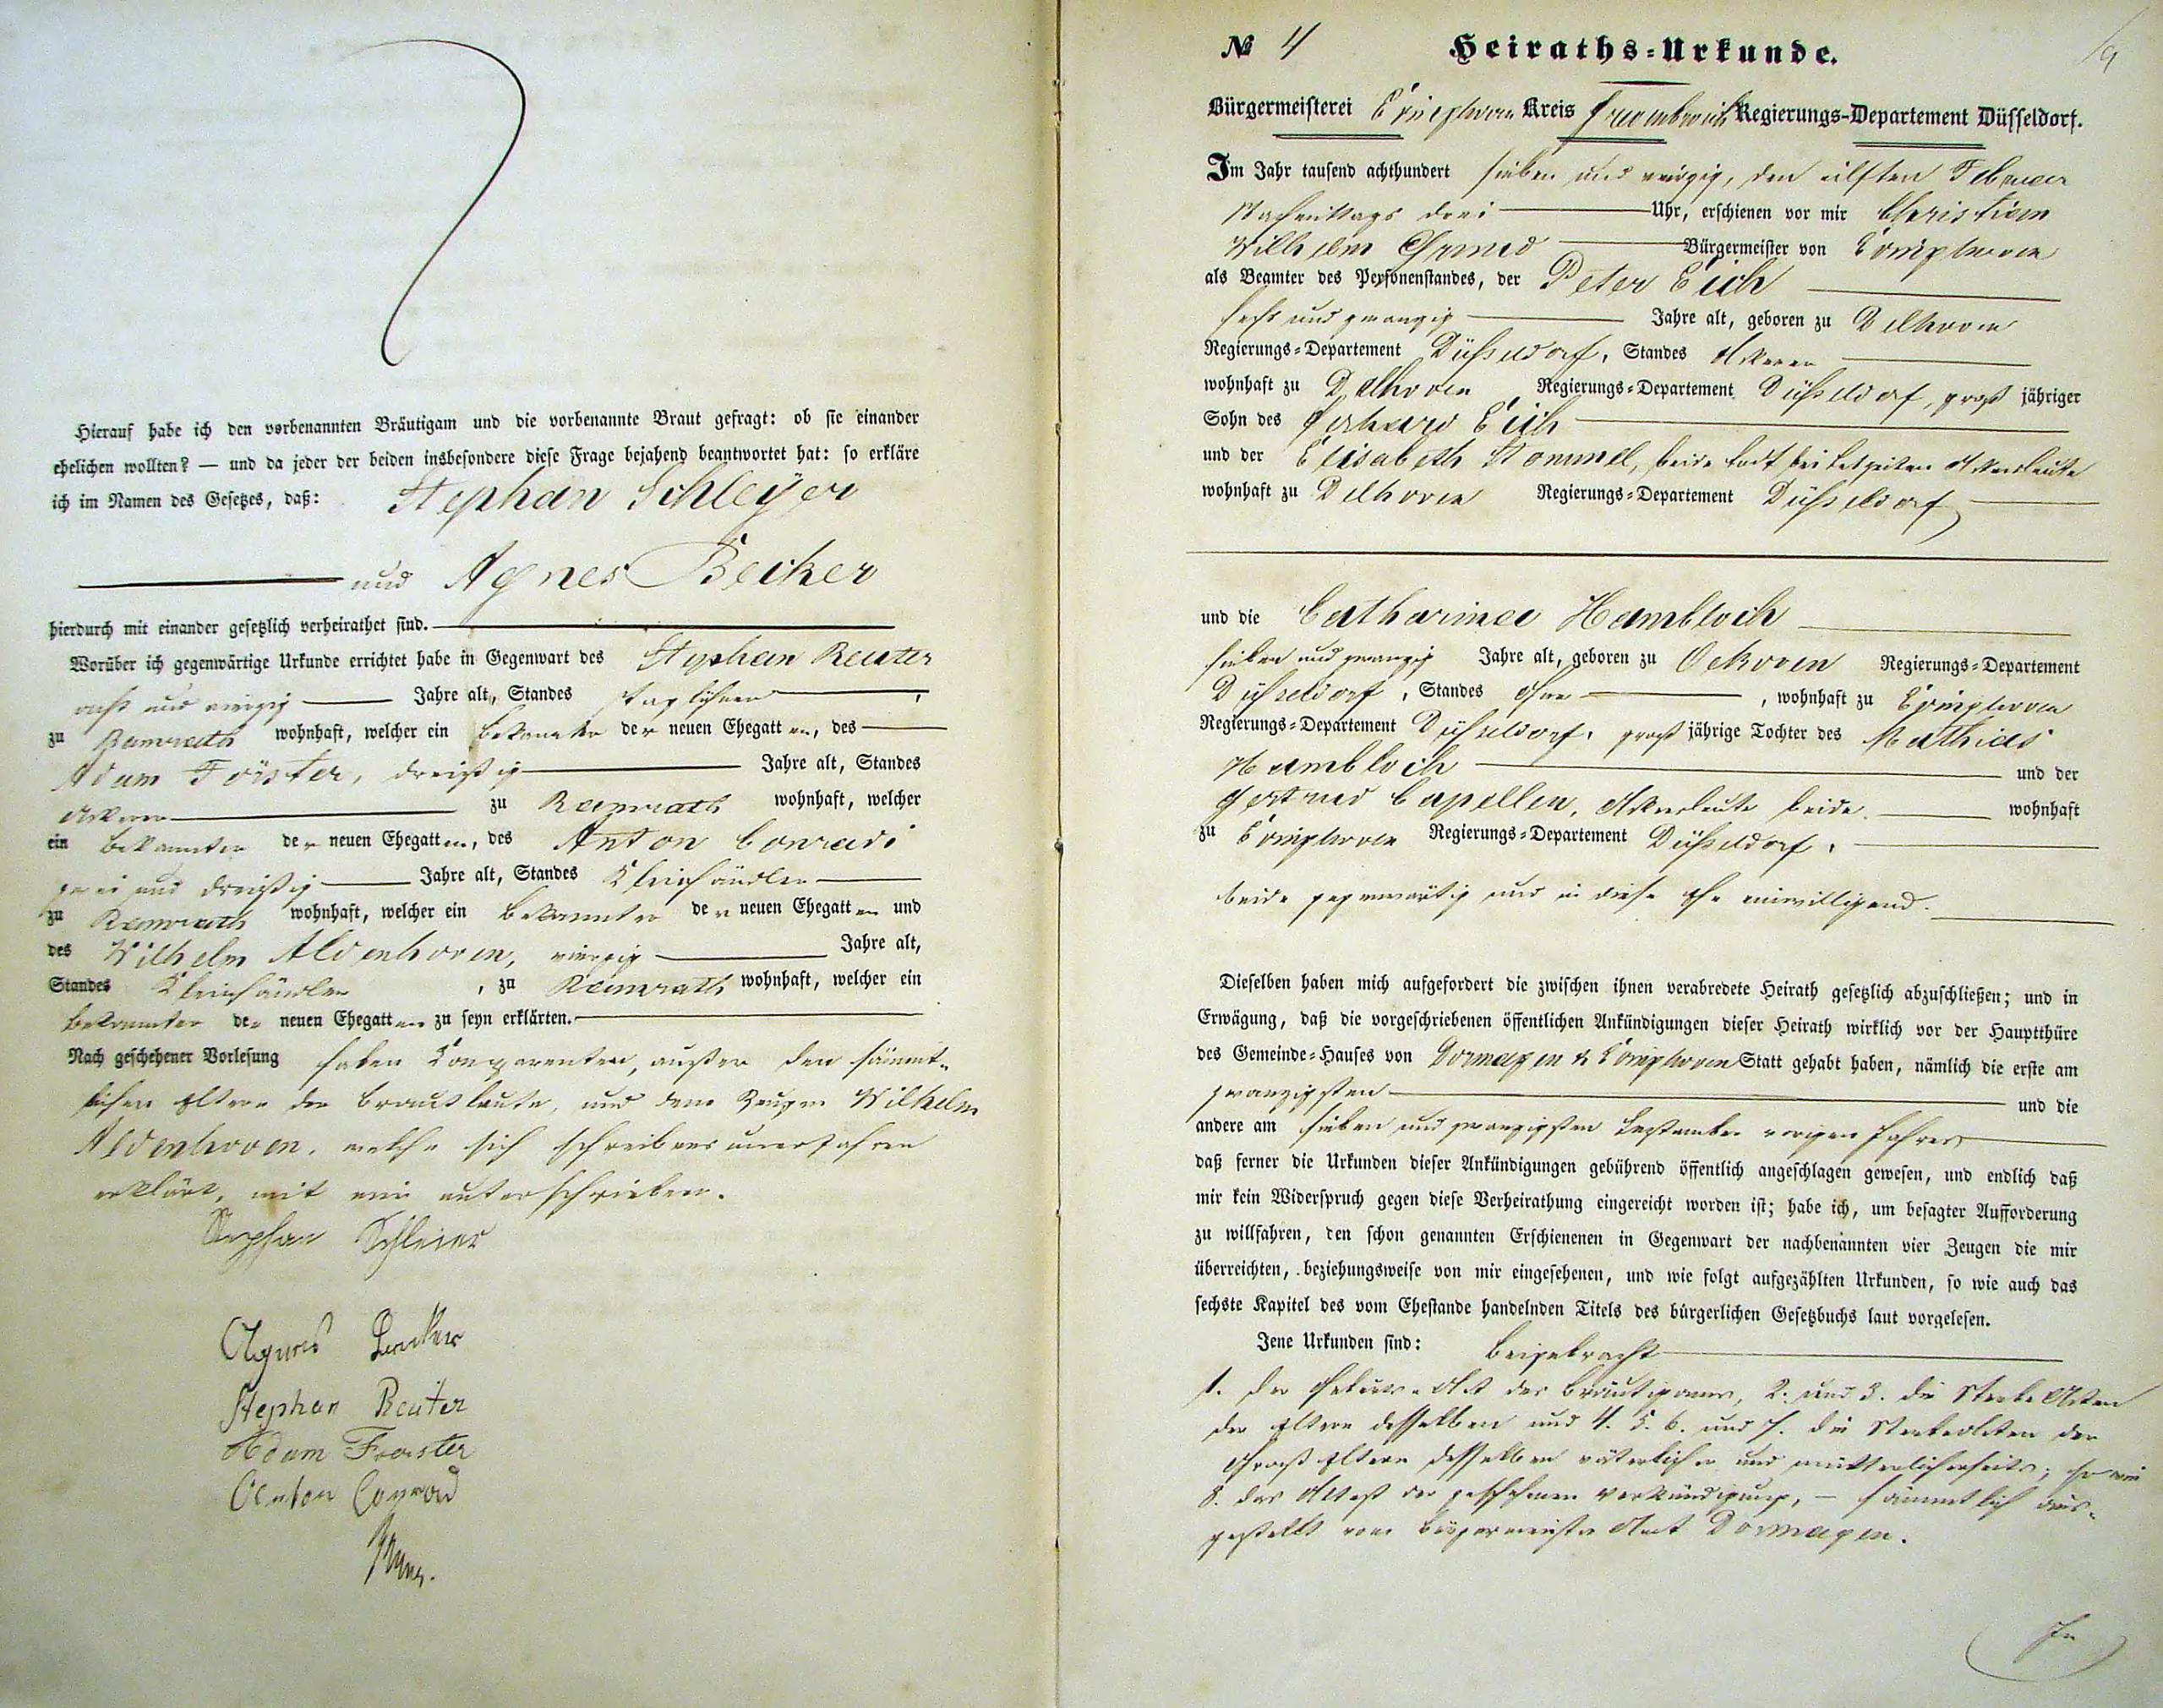 Hierauf habe ich den vorbenannten Bräutigam und die vorbenannte Braut gefragt: ob sie einander
ehelichen wollten? — und da jeder der beiden insbesondere diese Frage bejahend beantwortet hat: so erkläre
ich im Namen des Gesetzes, daß: Stephan Schleyer
und Agnes Becker
hierdurch mit einander gesetzlich verheirathet sind.
Worüber ich gegenwärtige Urkunde errichtet habe in Gegenwart des Stephan Reuter
acht und vierzig Jahre alt, Standes Taglöhner,
zu Ramrath wohnhaft, welcher ein Bekannter der neuen Ehegatten, des
Adam Förster, dreißig Jahre alt, Standes
Ackerer zu Ramrath wohnhaft, welcher
ein Bekannter der neuen Ehegatten, des Anton Conradi
zwei und dreißig Jahre alt, Standes Kleinhändler
zu Ramrath wohnhaft, welcher ein Bekannter der neuen Ehegatten und
des Wilhelm Aldenhoven, vierzig Jahre alt,
Standes Kleinhändler, zu Ramrath wohnhaft, welcher ein
Bekannter der neuen Ehegatten zu seyn erklärten.
Nach geschehener Vorlesung haben Komparenten, außer den sämmt-
lichen Eltern der Brautleute, und dem Zeugen Wilhelm
Aldenhoven, welche sich schreibensunerfahren
erklärt, mit mir unterschrieben.
Stephan Schleier
Agnes Becker
Stephan Reuter
Adam Foerster
Anton Conrad
№ 4 Heiraths-Urkunde. 19
Bürgermeisterei Evinghoven Kreis Grevenbroich Regierungs-Departement Düsseldorf.
Im Jahr tausend achthundert sieben und vierzig, den eilften Februar
Nachmittags drei Uhr, erschienen vor mir Christian
Wilhelm Bürgermeister von Evinghoven
als Beamter des Personenstandes, der Peter Eich
sechs und zwanzig Jahre alt, geboren zu Delhoven
Regierungs-Departement Düsseldorf, Standes Ackerer
wohnhaft zu Delhoven Regierungs-Departement Düsseldorf, groß jähriger
Sohn des Gerhard Eich
und der Elisabeth Stommel, beide todt bei Lebzeiten Ackersleute
wohnhaft zu Delhoven Regierungs-Departement Düsseldorf
und die Catharina Hambloch
sieben und zwanzig Jahre alt, geboren zu Oekoven Regierungs-Departement
Düsseldorf, Standes ohne, wohnhaft zu Evinghoven
Regierungs-Departement Düsseldorf, groß jährige Tochter des Mathias
Hambloch und der
Gertrud Capellen, Ackersleute beide wohnhaft
zu Evinghoven Regierungs-Departement Düsseldorf,
beide gegenwärtig und in diese Ehe einwilligend.
Dieselben haben mich aufgefordert die zwischen ihnen verabredete Heirath gesetzlich abzuschließen; und in
Erwägung, daß die vorgeschriebenen öffentlichen Ankündigungen dieser Heirath wirklich vor der Hauptthüre
des Gemeinde-Hauses von Dormagen & Evinghoven Statt gehabt haben, nämlich die erste am
zwanzigsten und die
andere am sieben und zwanzigsten Dezember vorigen Jahres
daß ferner die Urkunden dieser Ankündigungen gebührend öffentlich angeschlagen gewesen, und endlich daß
mir kein Widerspruch gegen diese Verheirathung eingereicht worden ist; habe ich, um besagter Aufforderung
zu willfahren, den schon genannten Erschienenen in Gegenwart der nachbenannten vier Zeugen die mir
überreichten, beziehungsweise von mir eingesehenen, und wie folgt aufgezählten Urkunden, so wie auch das
sechste Kapitel des vom Ehestande handelnden Titels des bürgerlichen Gesetzbuchs laut vorgelesen.
Jene Urkunden sind: beigebracht
1. der Geburts-Akt des Bräutigams, 2. und 3. die Sterbe Akten
der Eltern desselben und 4. 5. 6. und 7. die Sterbeakten der
Groß Eltern desselben väterlicher und mütterlicherseits; so wie
8. das Attest der geschehenen Verkündigung, — sämmtlich aus-
gestellt vom Bürgermeister Amt Dormagen.